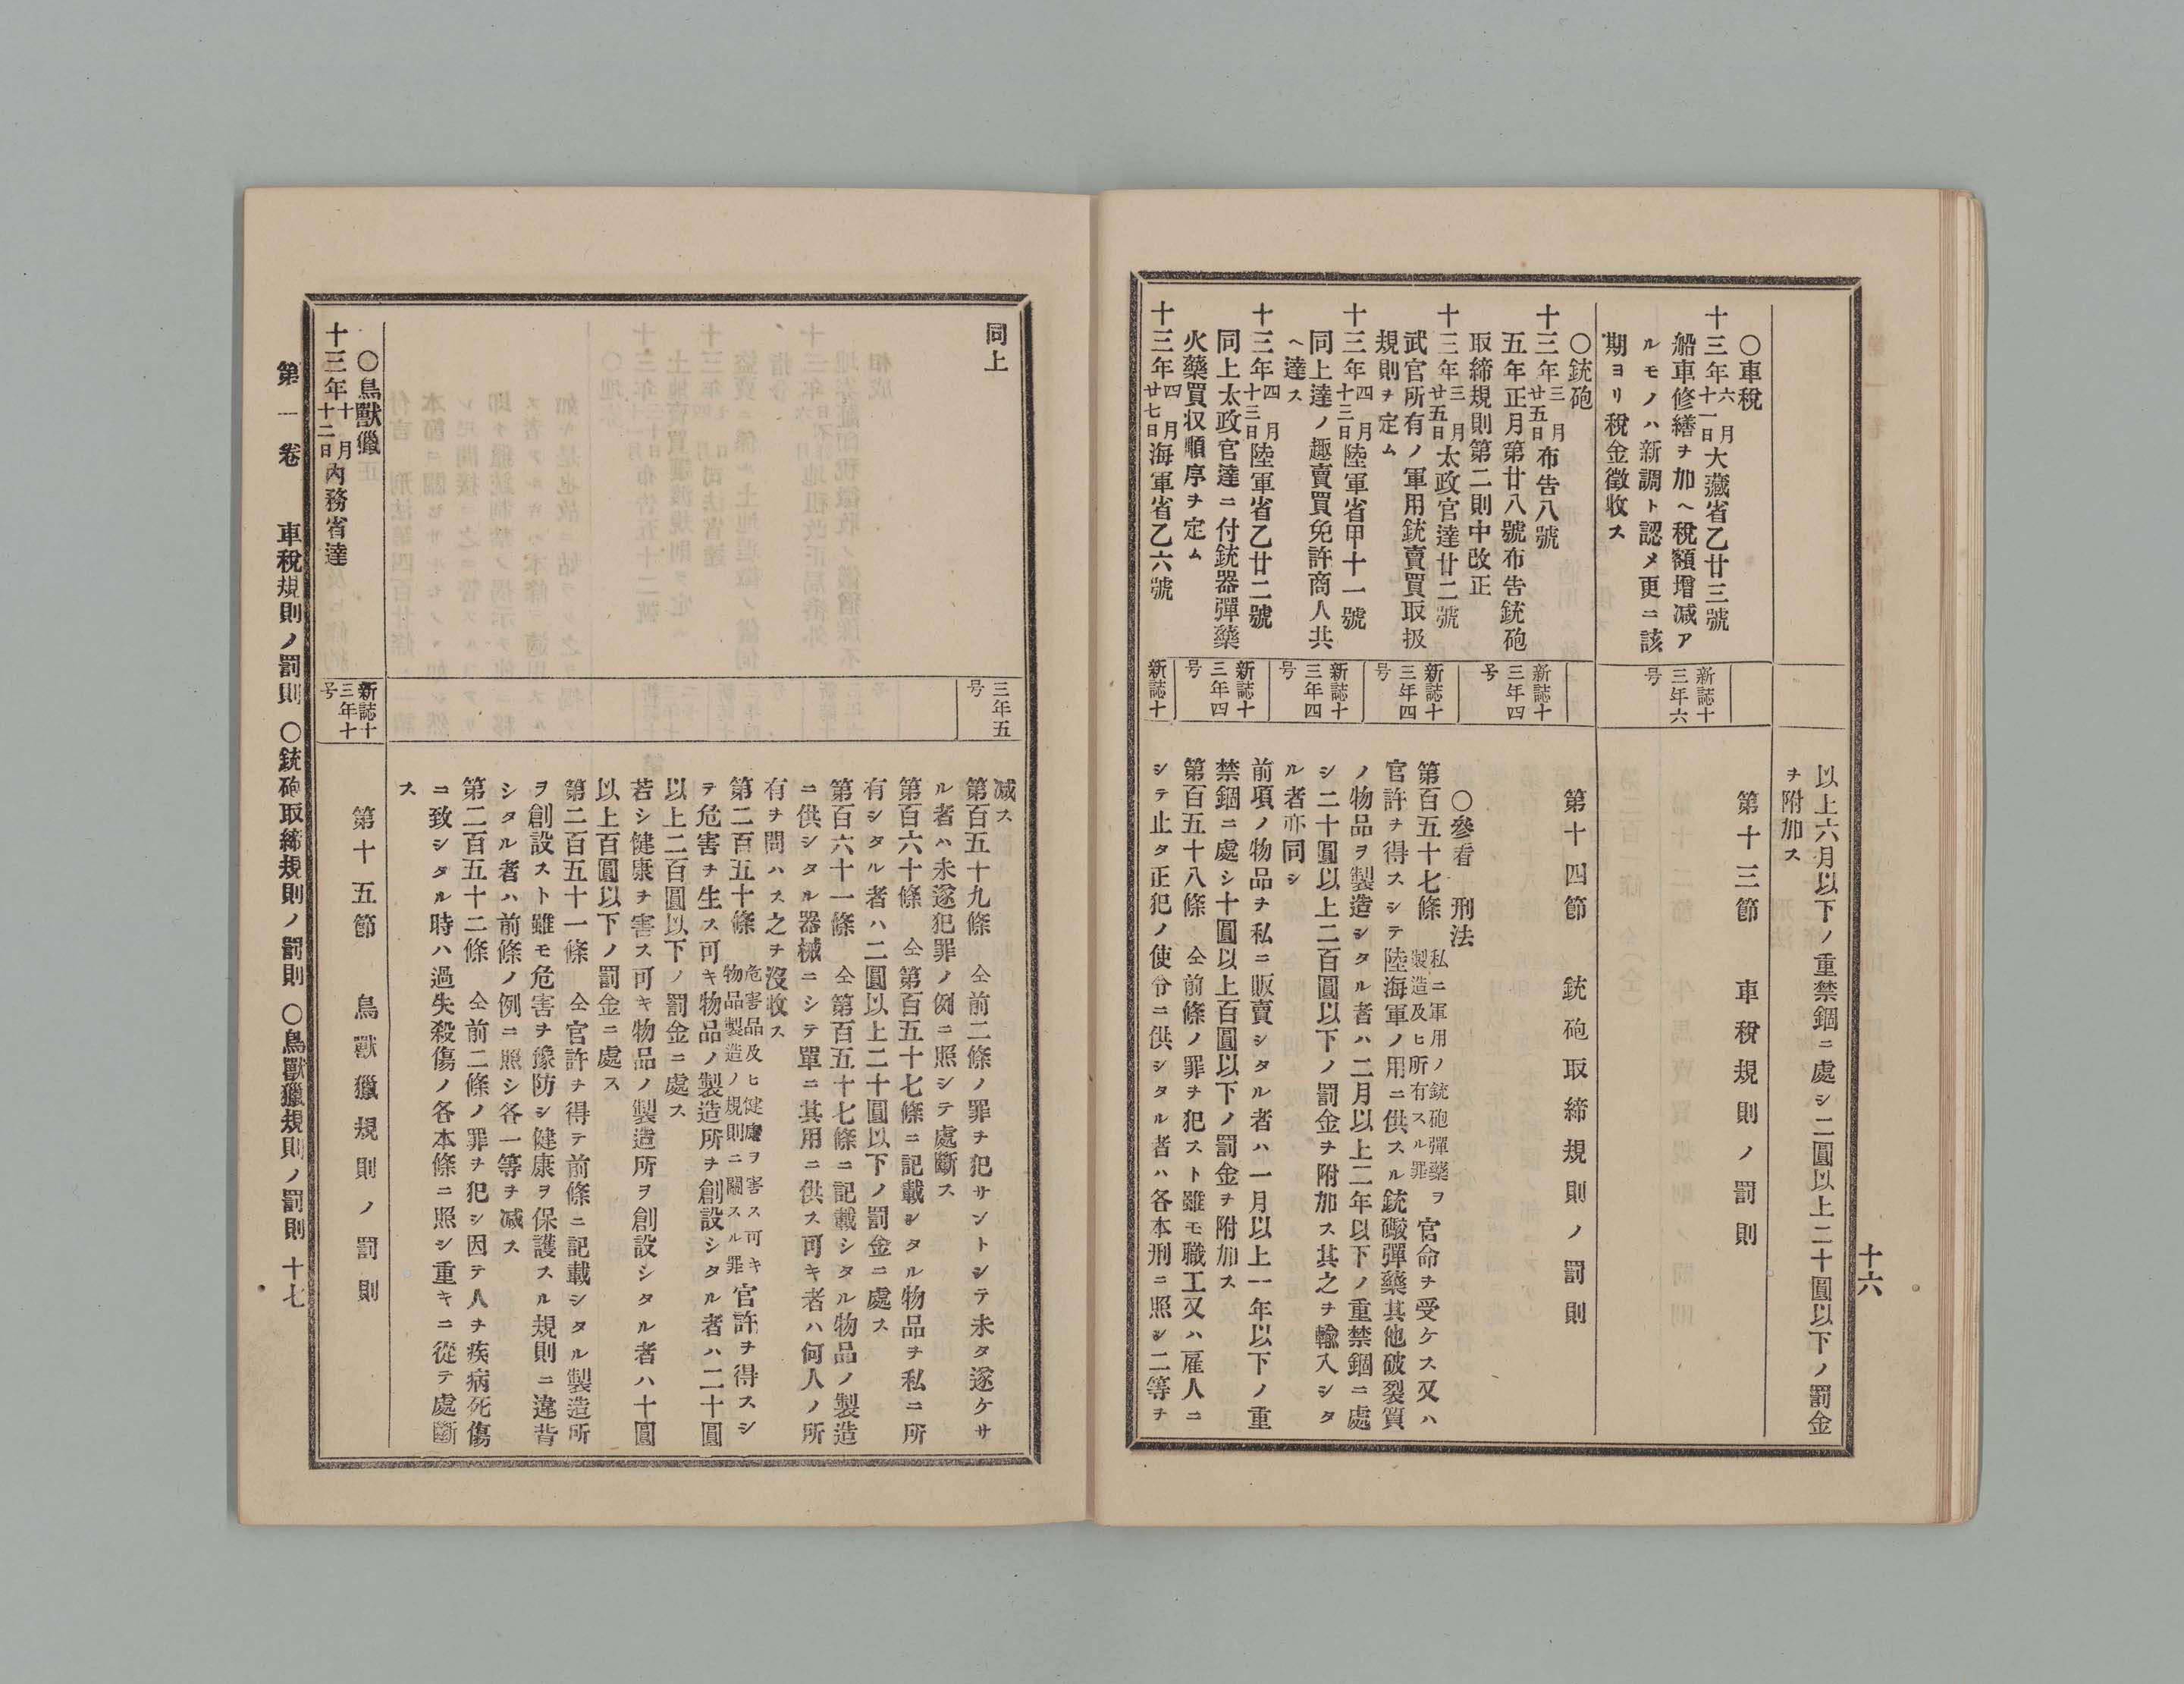 十六
以上六月以下ノ重禁錮ニ處シ二圓以上二十圓以下ノ罰金
ヲ附加ス
○車稅
十三年六月十一日大藏省乙廿三號
船車修繕ヲ加ヘ稅額増减ア
ルモノハ新調ト認メ更ニ該
期ヨリ稅金徵收ス
新誌十
三年六
号
第十三節 車稅規則ノ罰則
○銃砲
十三年三月廿五日布告八號
五年正月第廿八號布告銃砲
取締規則第二則中改正
新誌十
三年四
号
十三年三月廿五日太政官達廿二號
武官所有ノ軍用銃賣買取扱
規則ヲ定ム
新誌十
三年四
号
十三年四月十三日陸軍省甲十一號
同上達ノ趣賣買免許商人共
ヘ達ス
新誌十
三年四
号
十三年四月十三日陸軍省乙廿二號
同上太政官達ニ付銃器彈藥
火藥買収順序ヲ定ム
新誌十
三年四
号
十三年四月廿七日海軍省乙六號
新誌十
第十四節 銃砲取締規則ノ罰則
○參看 刑法
第百五十七條 私ニ軍用ノ銃砲彈藥ヲ製造及ヒ所有スル罪 官命ヲ受ケス又ハ
官許ヲ得スシテ陸海軍ノ用ニ供スル銃礮彈藥其他破裂質
ノ物品ヲ製造シタル者ハ二月以上二年以下ノ重禁錮ニ處
シ二十圓以上二百圓以下ノ罰金ヲ附加ス其之ヲ輸入シタ
ル者亦同シ
前項ノ物品ヲ私ニ販賣シタル者ハ一月以上一年以下ノ重
禁錮ニ處シ十圓以上百圓以下ノ罰金ヲ附加ス
第百五十八條 仝前條ノ罪ヲ犯スト雖モ職工又ハ雇人ニ
シテ止タ正犯ノ使令ニ供シタル者ハ各本刑ニ照シ二等ヲ
同上
三年五
号
减ス
第百五十九條 仝前二條ノ罪ヲ犯サントシテ未タ遂ケサ
ル者ハ未遂犯罪ノ例ニ照シテ處斷ス
第百六十條 仝第百五十七條ニ記載シタル物品ヲ私ニ所
有シタル者ハ二圓以上二十圓以下ノ罰金ニ處ス
第百六十一條 仝第百五十七條ニ記載シタル物品ノ製造
ニ供シタル器械ニシテ單ニ其用ニ供ス可キ者ハ何人ノ所
有ヲ問ハス之ヲ沒收ス
第二百五十條 危害品及ヒ健康ヲ害ス可キ物品製造ノ規則ニ關スル罪 官許ヲ得スシ
テ危害ヲ生ス可キ物品ノ製造所ヲ創設シタル者ハ二十圓
以上二百圓以下ノ罰金ニ處ス
若シ健康ヲ害ス可キ物品ノ製造所ヲ創設シタル者ハ十圓
以上百圓以下ノ罰金ニ處ス
第二百五十一條 仝官許ヲ得テ前條ニ記載シタル製造所
ヲ創設スト雖モ危害ヲ豫防シ健康ヲ保護スル規則ニ違背
シタル者ハ前條ノ例ニ照シ各一等ヲ减ス
第二百五十二條 仝前二條ノ罪ヲ犯シ因テ人ヲ疾病死傷
ニ致シタル時ハ過失殺傷ノ各本條ニ照シ重キニ從テ處斷
ス
○鳥獸獵
十三年十月十二日內務省達
新誌十
三年十
号
第十五節 鳥獸獵規則ノ罰則
第一卷 車稅規則ノ罰則 ○銃砲取締規則ノ罰則 ○鳥獸獵規則ノ罰則 十七